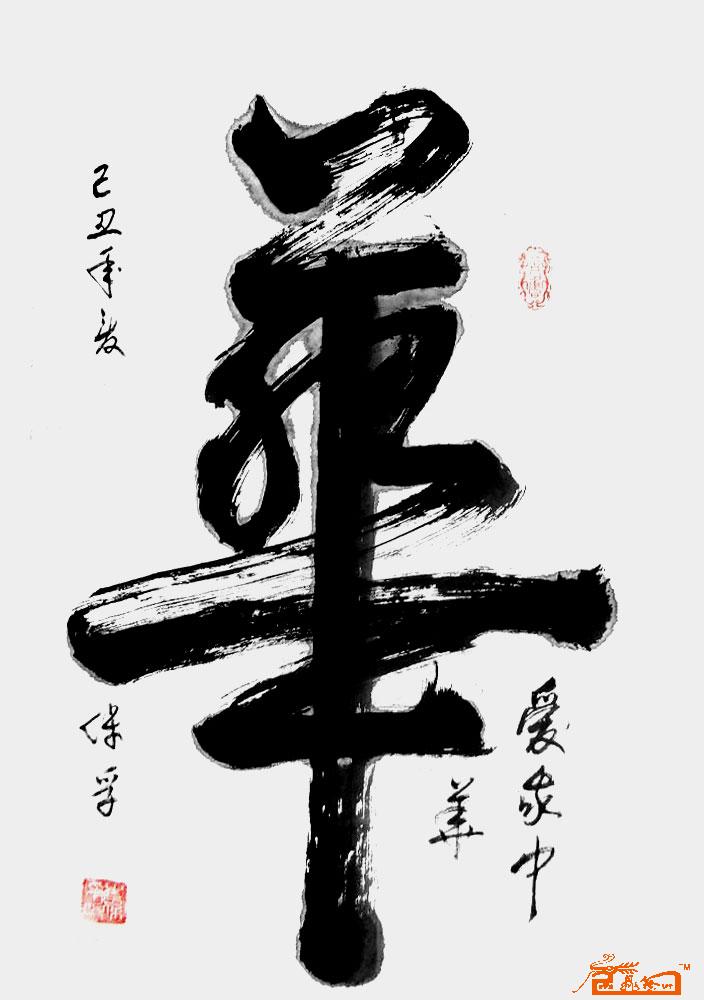 華
愛我中
華
己丑年夏
保孚